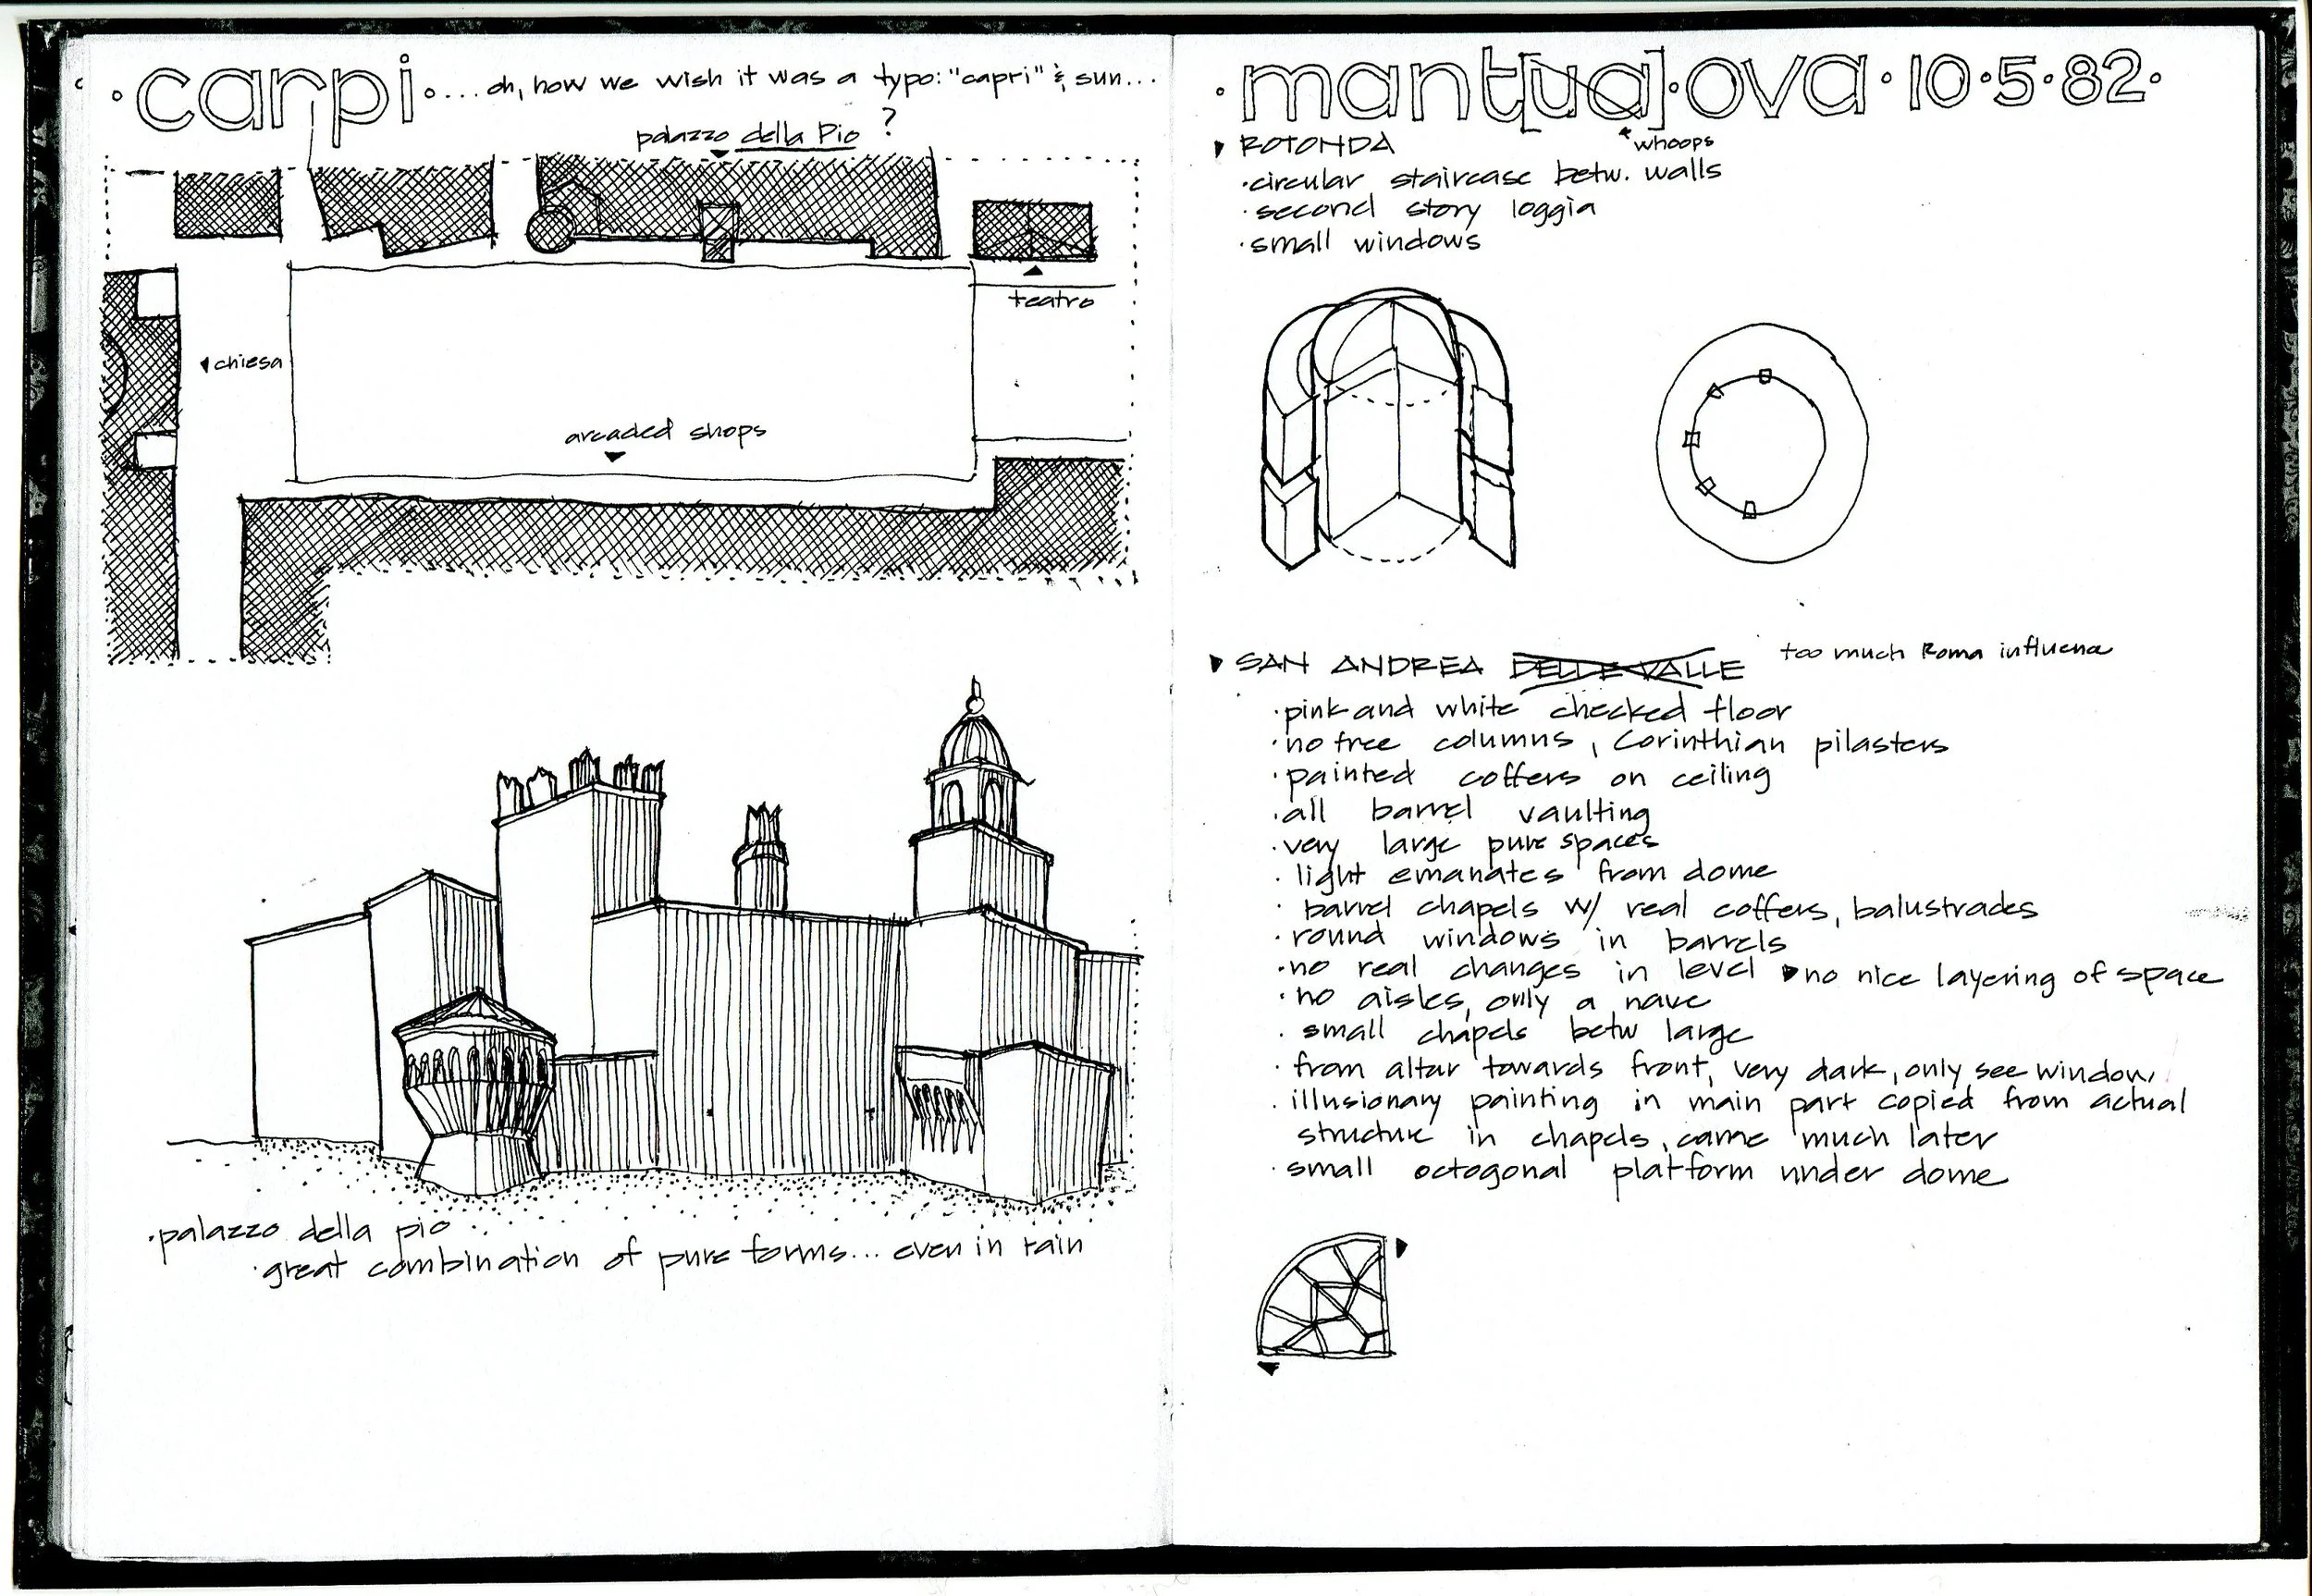 ·carpi·... oh, how we wish it was a typo: "capri" & sun...
palazzo della Pio ?
teatro
chiesa
arcaded shops
·palazzo della pio
·great combination of pure forms... even in rain
·mant[ua]·ova·10·5·82·
whoops
ROTONDA
·circular staircase betw. walls
·second story loggia
·small windows
SAN ANDREA DELLE VALLE too much Roma influence
·pink and white checked floor
·no free columns, Corinthian pilasters
·painted coffers on ceiling
·all barrel vaulting
·very large pure spaces
·light emanates from dome
·barrel chapels w/ real coffers, balustrades
·round windows in barrels
·no real changes in level ▶no nice layering of space
·no aisles, only a nave
·small chapels betw large
·from altar towards front, very dark, only see window
·illusionary painting in main part copied from actual
structure in chapels, came much later
·small octogonal platform under dome